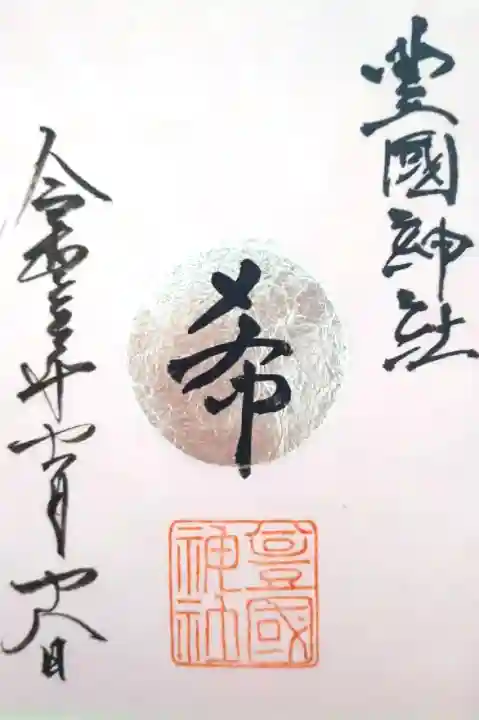 豊國神社
希
豊國
神社
令和三年十一月十八日